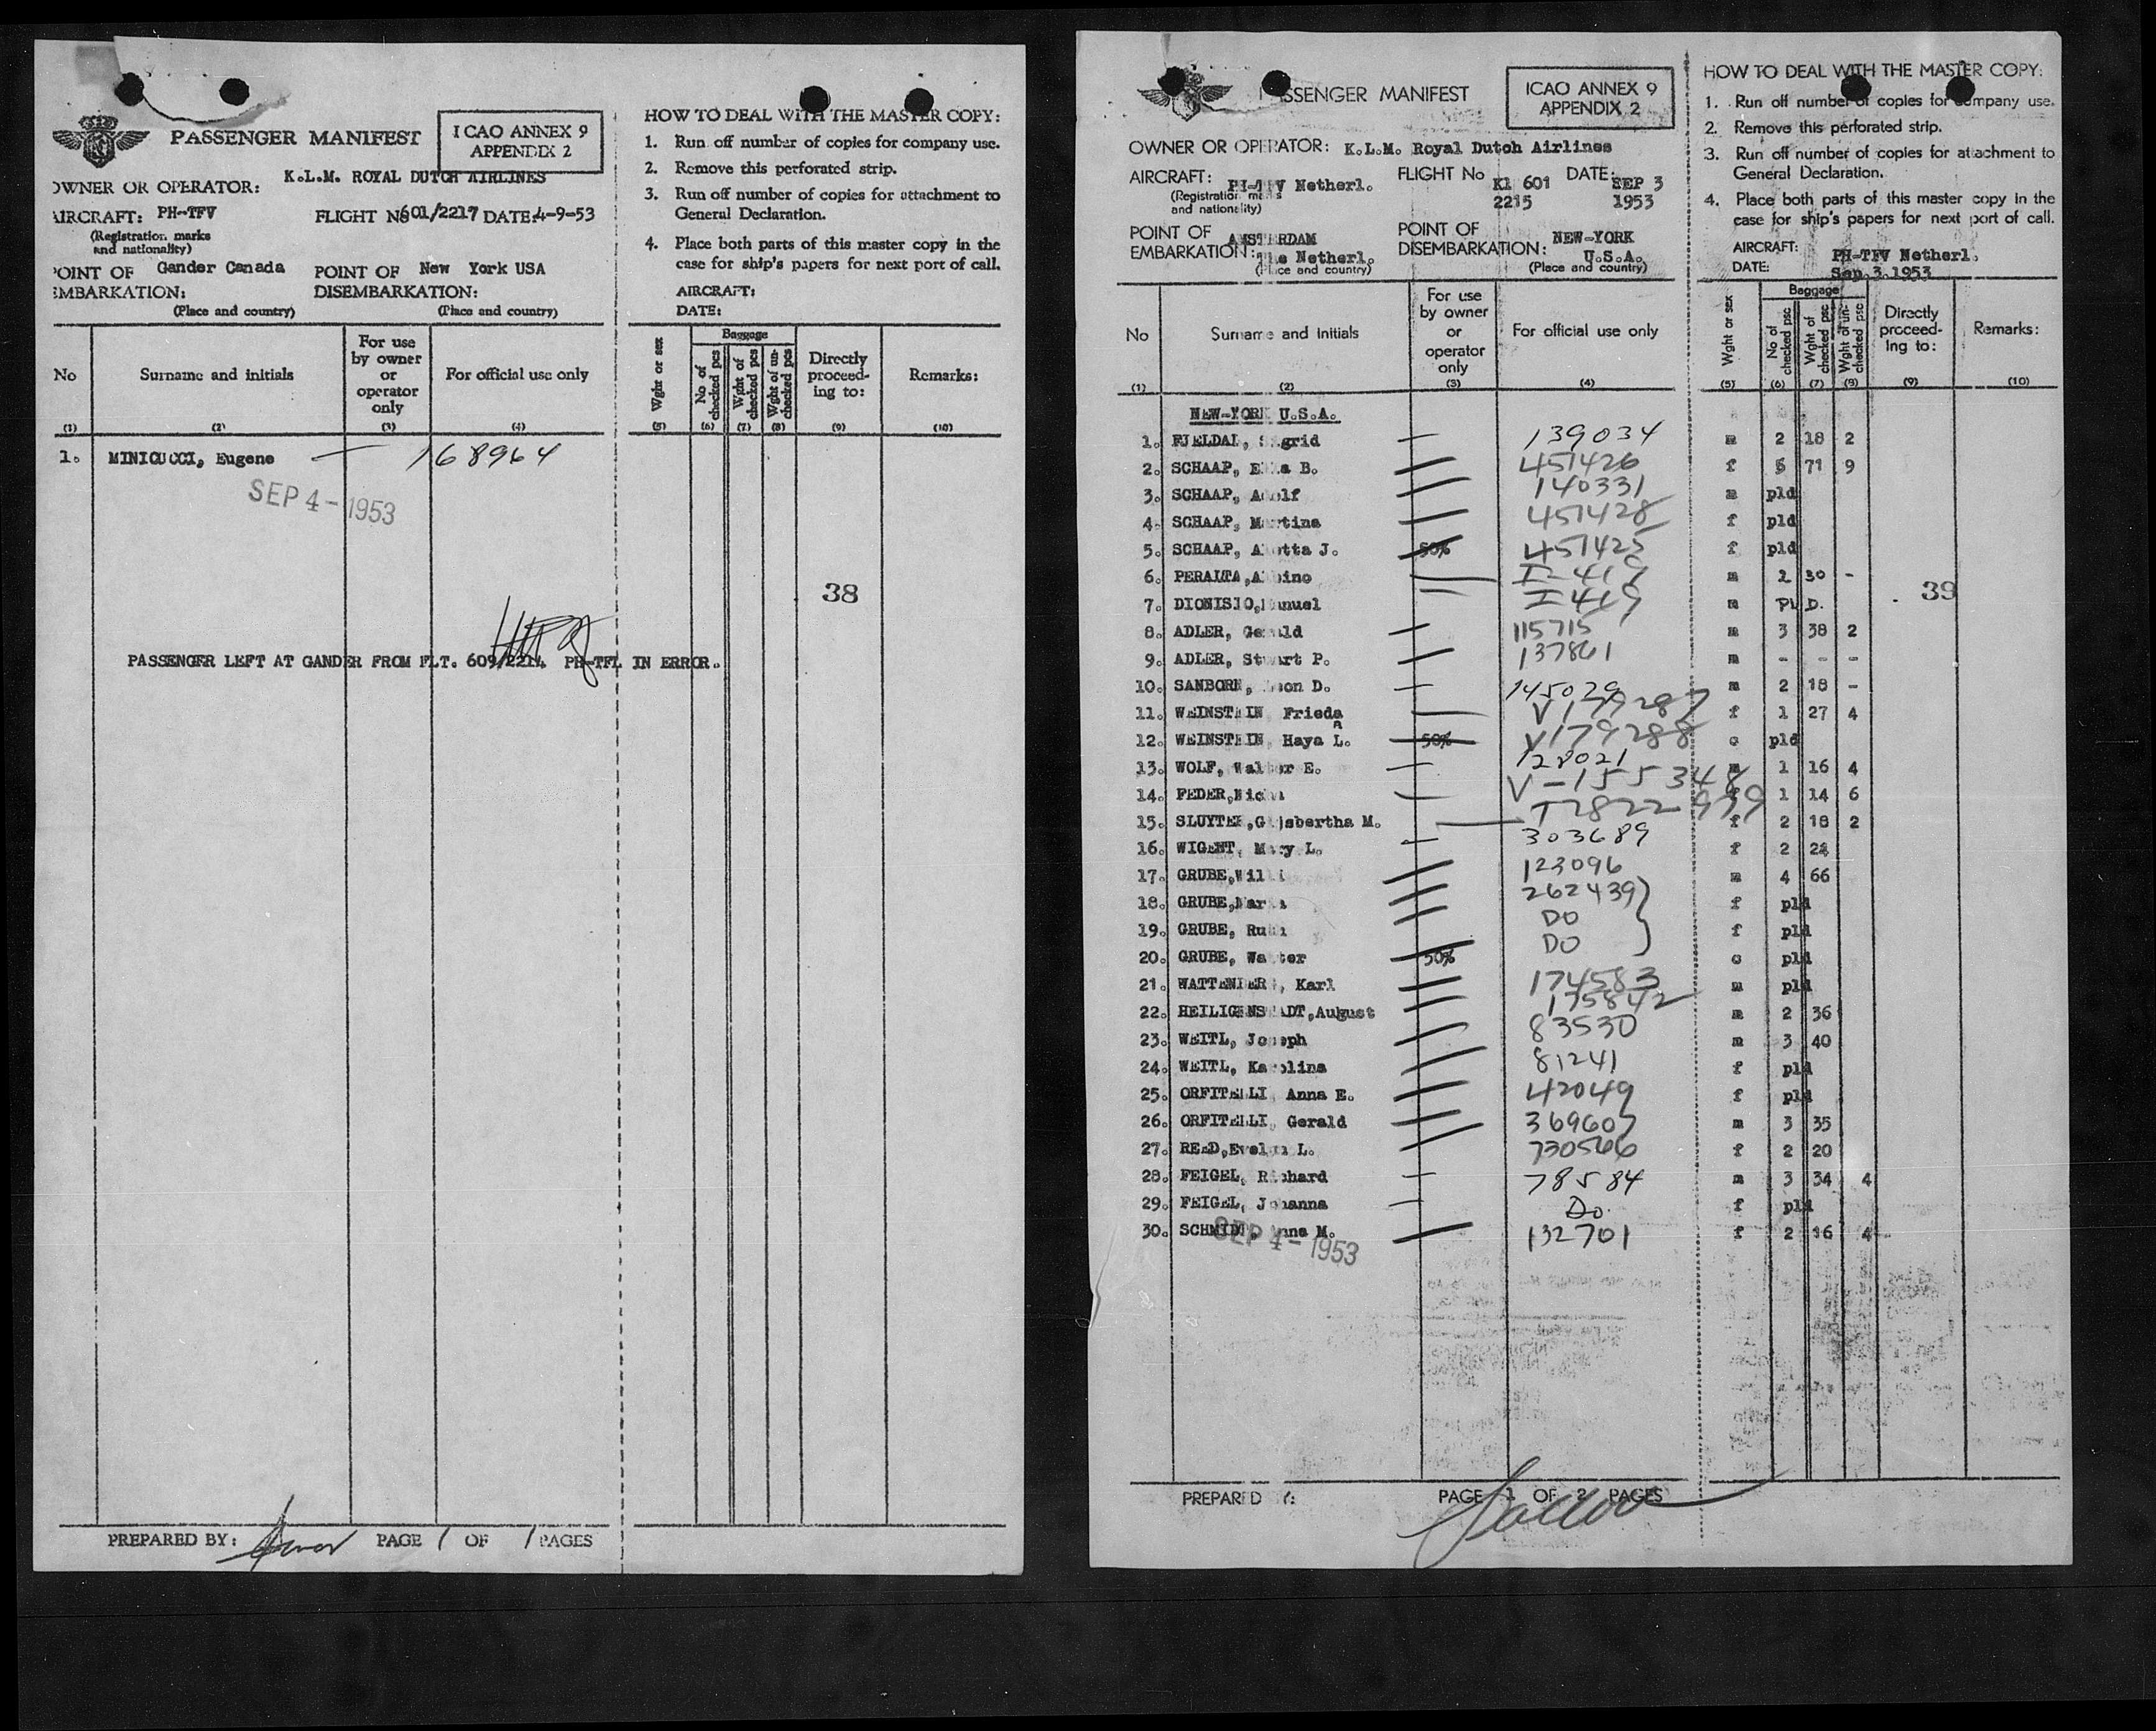 PASSENGER MANIFEST
ICAO ANNEX 9
APPENDIX 2
OWNER OR OPERATOR: K.L.M. ROYAL DUTCH AIRLINES
AIRCRAFT: PH-TFV FLIGHT No 601/2217 DATE: 4-9-53
(Registration marks
and nationality)
POINT OF Gander Canada POINT OF New York USA
EMBARKATION: DISEMBARKATION:
(Place and country) (Place and country)
HOW TO DEAL WITH THE MASTER COPY:
1. Run off number of copies for company use.
2. Remove this perforated strip.
3. Run off number of copies for attachment to
General Declaration.
4. Place both parts of this master copy in the
case for ship's papers for next port of call.
AIRCRAFT:
DATE:
No Surname and initials For use by owner or operator only For official use only Wght or sex Baggage No of checked pcs Wght of checked pcs Wght of un-checked pcs Directly proceed-ing to: Remarks:
(1) (2) (3) (4) (5) (6) (7) (8) (9) (10)
1. MINICUCCI, Eugene — 168964
SEP 4 - 1953
38
PASSENGER LEFT AT GANDER FROM FLT. 609/2214 PH-TFL IN ERROR.
PREPARED BY: PAGE 1 OF 1 PAGES
PASSENGER MANIFEST
ICAO ANNEX 9
APPENDIX 2
OWNER OR OPERATOR: K.L.M. Royal Dutch Airlines
AIRCRAFT: PH-TFV Netherl. FLIGHT No Kl 601 DATE: SEP 3
(Registration marks 2215 1953
and nationality)
POINT OF AMSTERDAM POINT OF NEW-YORK
EMBARKATION: The Netherl. DISEMBARKATION: U.S.A.
(Place and country) (Place and country)
HOW TO DEAL WITH THE MASTER COPY:
1. Run off number of copies for company use.
2. Remove this perforated strip.
3. Run off number of copies for attachment to
General Declaration.
4. Place both parts of this master copy in the
case for ship's papers for next port of call.
AIRCRAFT: PH-TFV Netherl.
DATE: Sep.3.1953
No Surname and initials For use by owner or operator only For official use only Wght or sex Baggage No of checked psc Wght of checked psc Wght of un-checked psc Directly proceed-ing to: Remarks:
(1) (2) (3) (4) (5) (6) (7) (8) (9) (10)
NEW-YORK U.S.A.
1. FJELDAL, Sigrid — 139034 m 2 18 2
2. SCHAAP, E B. — 451426 f 5 71 9
3. SCHAAP, Adolf — 140331 m pld
4. SCHAAP, Martina — 451428 f pld
5. SCHAAP, Aletta J. 50% 451425 f pld
6. PERALTA, Albino — I-419 m 2 30 -
7. DIONISIO, Manuel — I-419 m PLD.
39
8. ADLER, Gerald — 115715 m 3 38 2
9. ADLER, Stuart P. 137861 m - - -
10. SANBORN, D. — 145029 m 2 18 -
11. WEINSTEIN Frieda — V179287 f 1 27 4
12. WEINSTEIN, Haya L. 50% V179288 c pld
13. WOLF, Walter E. — 128021 m 1 16 4
14. FEDER, — V-155348 f 1 14 6
15. SLUYTER, Gijsbertha M. — T2822979 f 2 18 2
16. WIGENT, Mary L. — 303689 f 2 28
17. GRUBE, Willi — 123096 m 4 66
18. GRUBE, Maria — 262439 f pld
19. GRUBE, Ruth — DO f pld
20. GRUBE, Walter 50% DO c pld
21. WATTENBERG, Karl — 174583 m pld
22. HEILIGENSTADT, August — 175842 m 2 36
23. WEITL, Joseph — 83530 m 3 40
24. WEITL, Karolina — 81241 f pld
25. ORFITELLI, Anna E. — 42049 f pld
26. ORFITELLI, Gerald — 369607 m 3 35
27. REED, Evelyn L. — 730566 f 2 20
28. FEIGEL, Richard — 78584 m 3 34 4
29. FEIGEL, Johanna — Do. f pld
30. SCHMIDT, Anna M. — 132701 f 2 16 4
SEP 4 - 1953
PREPARED BY: PAGE 1 OF 2 PAGES